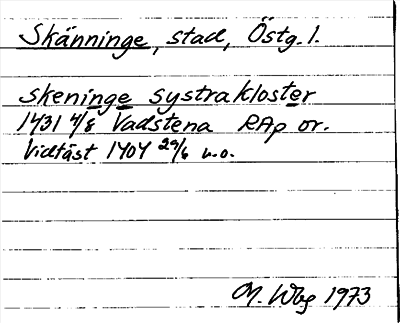 Skänninge, stad, Östg. l.
skeninge systrakloster
1431 4/8 Vadstena RAp or.
Vidfäst 1404 29/6 u.o.
M. Wbg 1973